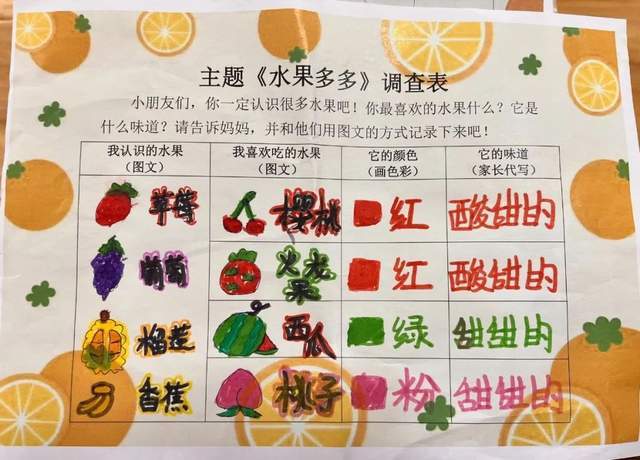 主题《水果多多》调查表
小朋友们，你一定认识很多水果吧！你最喜欢的水果什么？它是
什么味道？请告诉妈妈，并和他们用图文的方式记录下来吧！
我认识的水果 我喜欢吃的水果 它的颜色 它的味道
（图文） （图文） （画色彩） （家长代写）
草莓 樱桃 红 酸甜的
葡萄 火龙果 红 酸甜的
榴莲 西瓜 绿 甜甜的
香蕉 桃子 粉 甜甜的